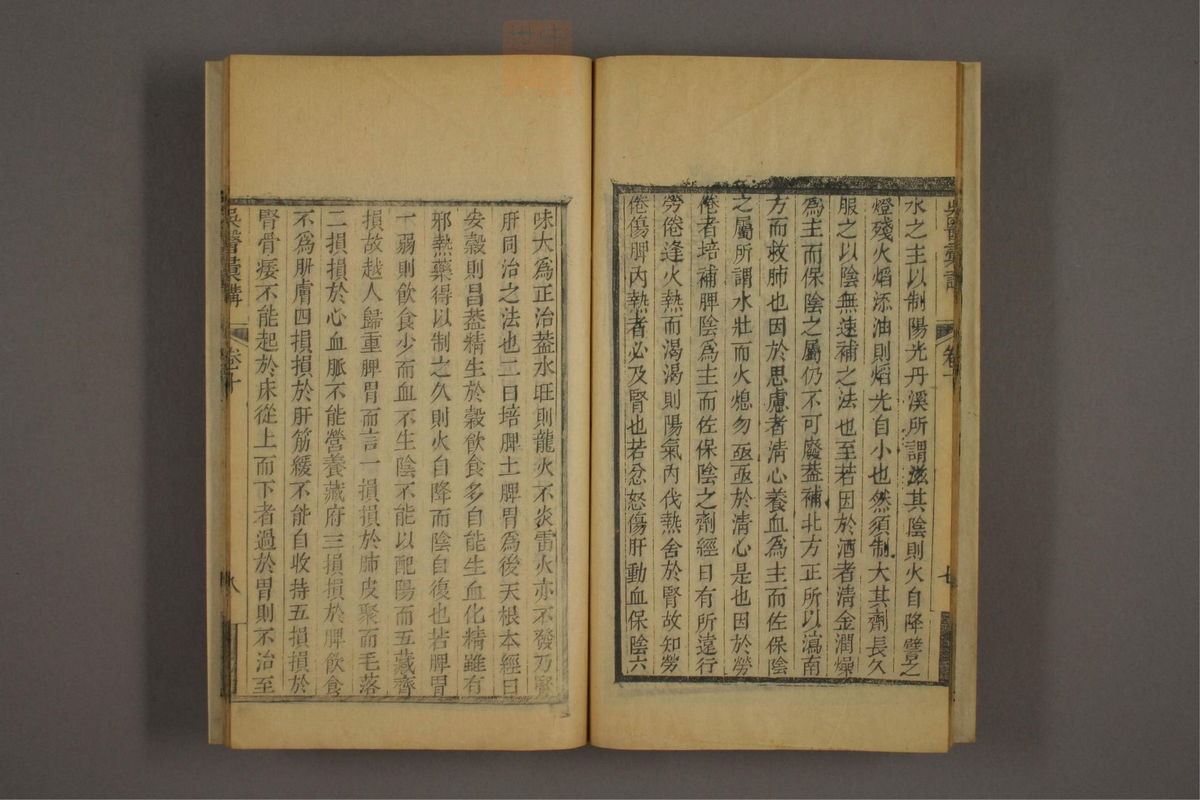 水之主以制陽光丹溪所謂滋其陰則火自降譬之
燈殘火焰添油則焰光自小也然須制大其劑長久
服之以陰無速補之法也至若因於酒者清金潤燥
為主而保陰之屬仍不可廢蓋補北方正所以瀉南
方而救肺也因於思慮者清心養血為主而佐保陰
之屬所謂水壯而火熄勿亟亟於清心是也因於勞
倦者培補脾陰為主而佐保陰之劑經曰有所遠行
勞倦逢火熱而渴渴則陽氣內伐熱舍於腎故知勞
倦傷脾內熱者必及腎也若忿怒傷肝動血保陰六
味大為正治蓋水旺則龍火不炎雷火亦不發乃腎
肝同治之法也二曰培脾土脾胃為後天根本經曰
安穀則昌蓋精生於穀飲食多自能生血化精雖有
邪熱藥得以制之久則火自降而陰自復也若脾胃
一弱則飲食少而血不生陰不能以配陽而五藏齊
損故越人歸重脾胃而言一損損於肺皮聚而毛落
二損損於心血脈不能營養藏府三損損於脾飲食
不為肌膚四損損於肝筋緩不能自收持五損損於
腎骨痿不能起於床從上而下者過於胃則不治至
吳醫彙講
卷十
八